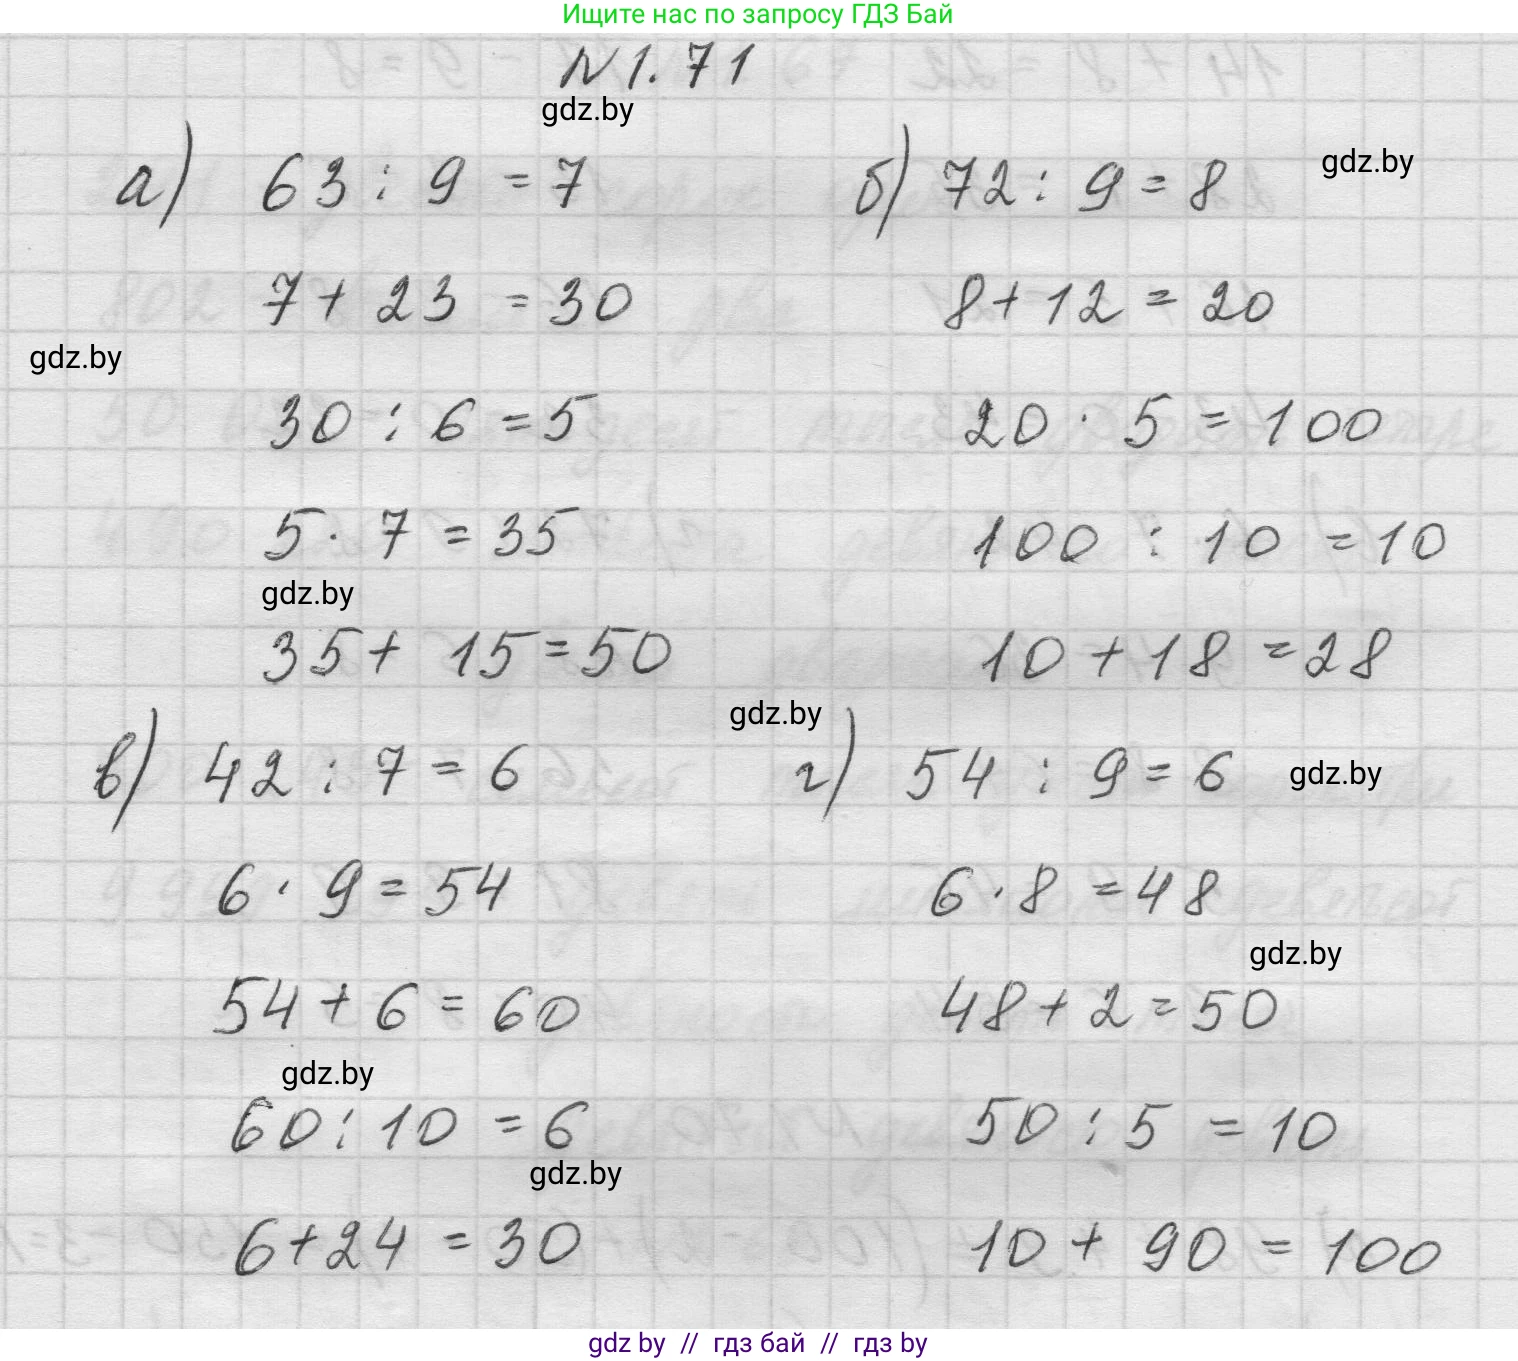 Ищите нас по запросу ГДЗ Бай
N 1.71
gdz.by
а) 63 : 9 = 7
7 + 23 = 30
gdz.by
30 : 6 = 5
5 · 7 = 35
gdz.by
35 + 15 = 50
б) 72 : 9 = 8
gdz.by
8 + 12 = 20
20 · 5 = 100
100 : 10 = 10
10 + 18 = 28
gdz.by
в) 42 : 7 = 6
6 · 9 = 54
54 + 6 = 60
gdz.by
60 : 10 = 6
gdz.by
6 + 24 = 30
г) 54 : 9 = 6
gdz.by
6 · 8 = 48
gdz.by
48 + 2 = 50
50 : 5 = 10
10 + 90 = 100
gdz by // гдз бай // гдз by